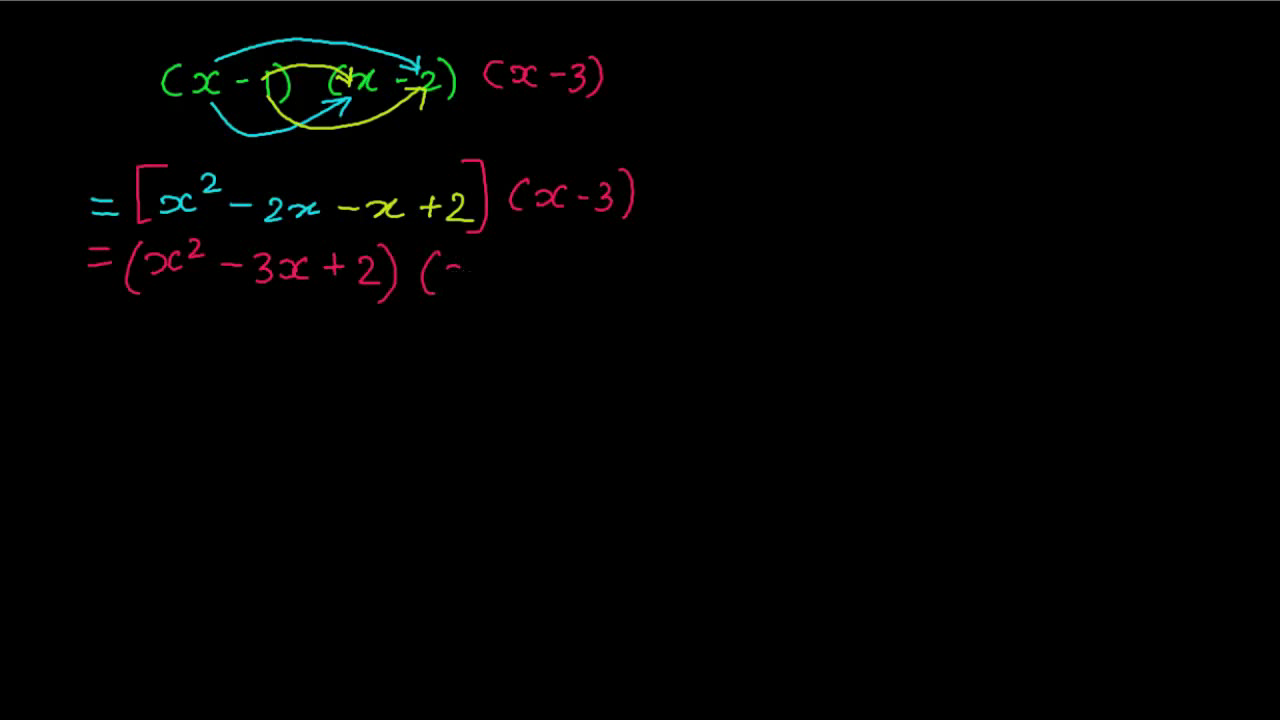 (x - 1) (x - 2) (x - 3)
= [x² - 2x - x + 2] (x - 3)
= (x² - 3x + 2) (